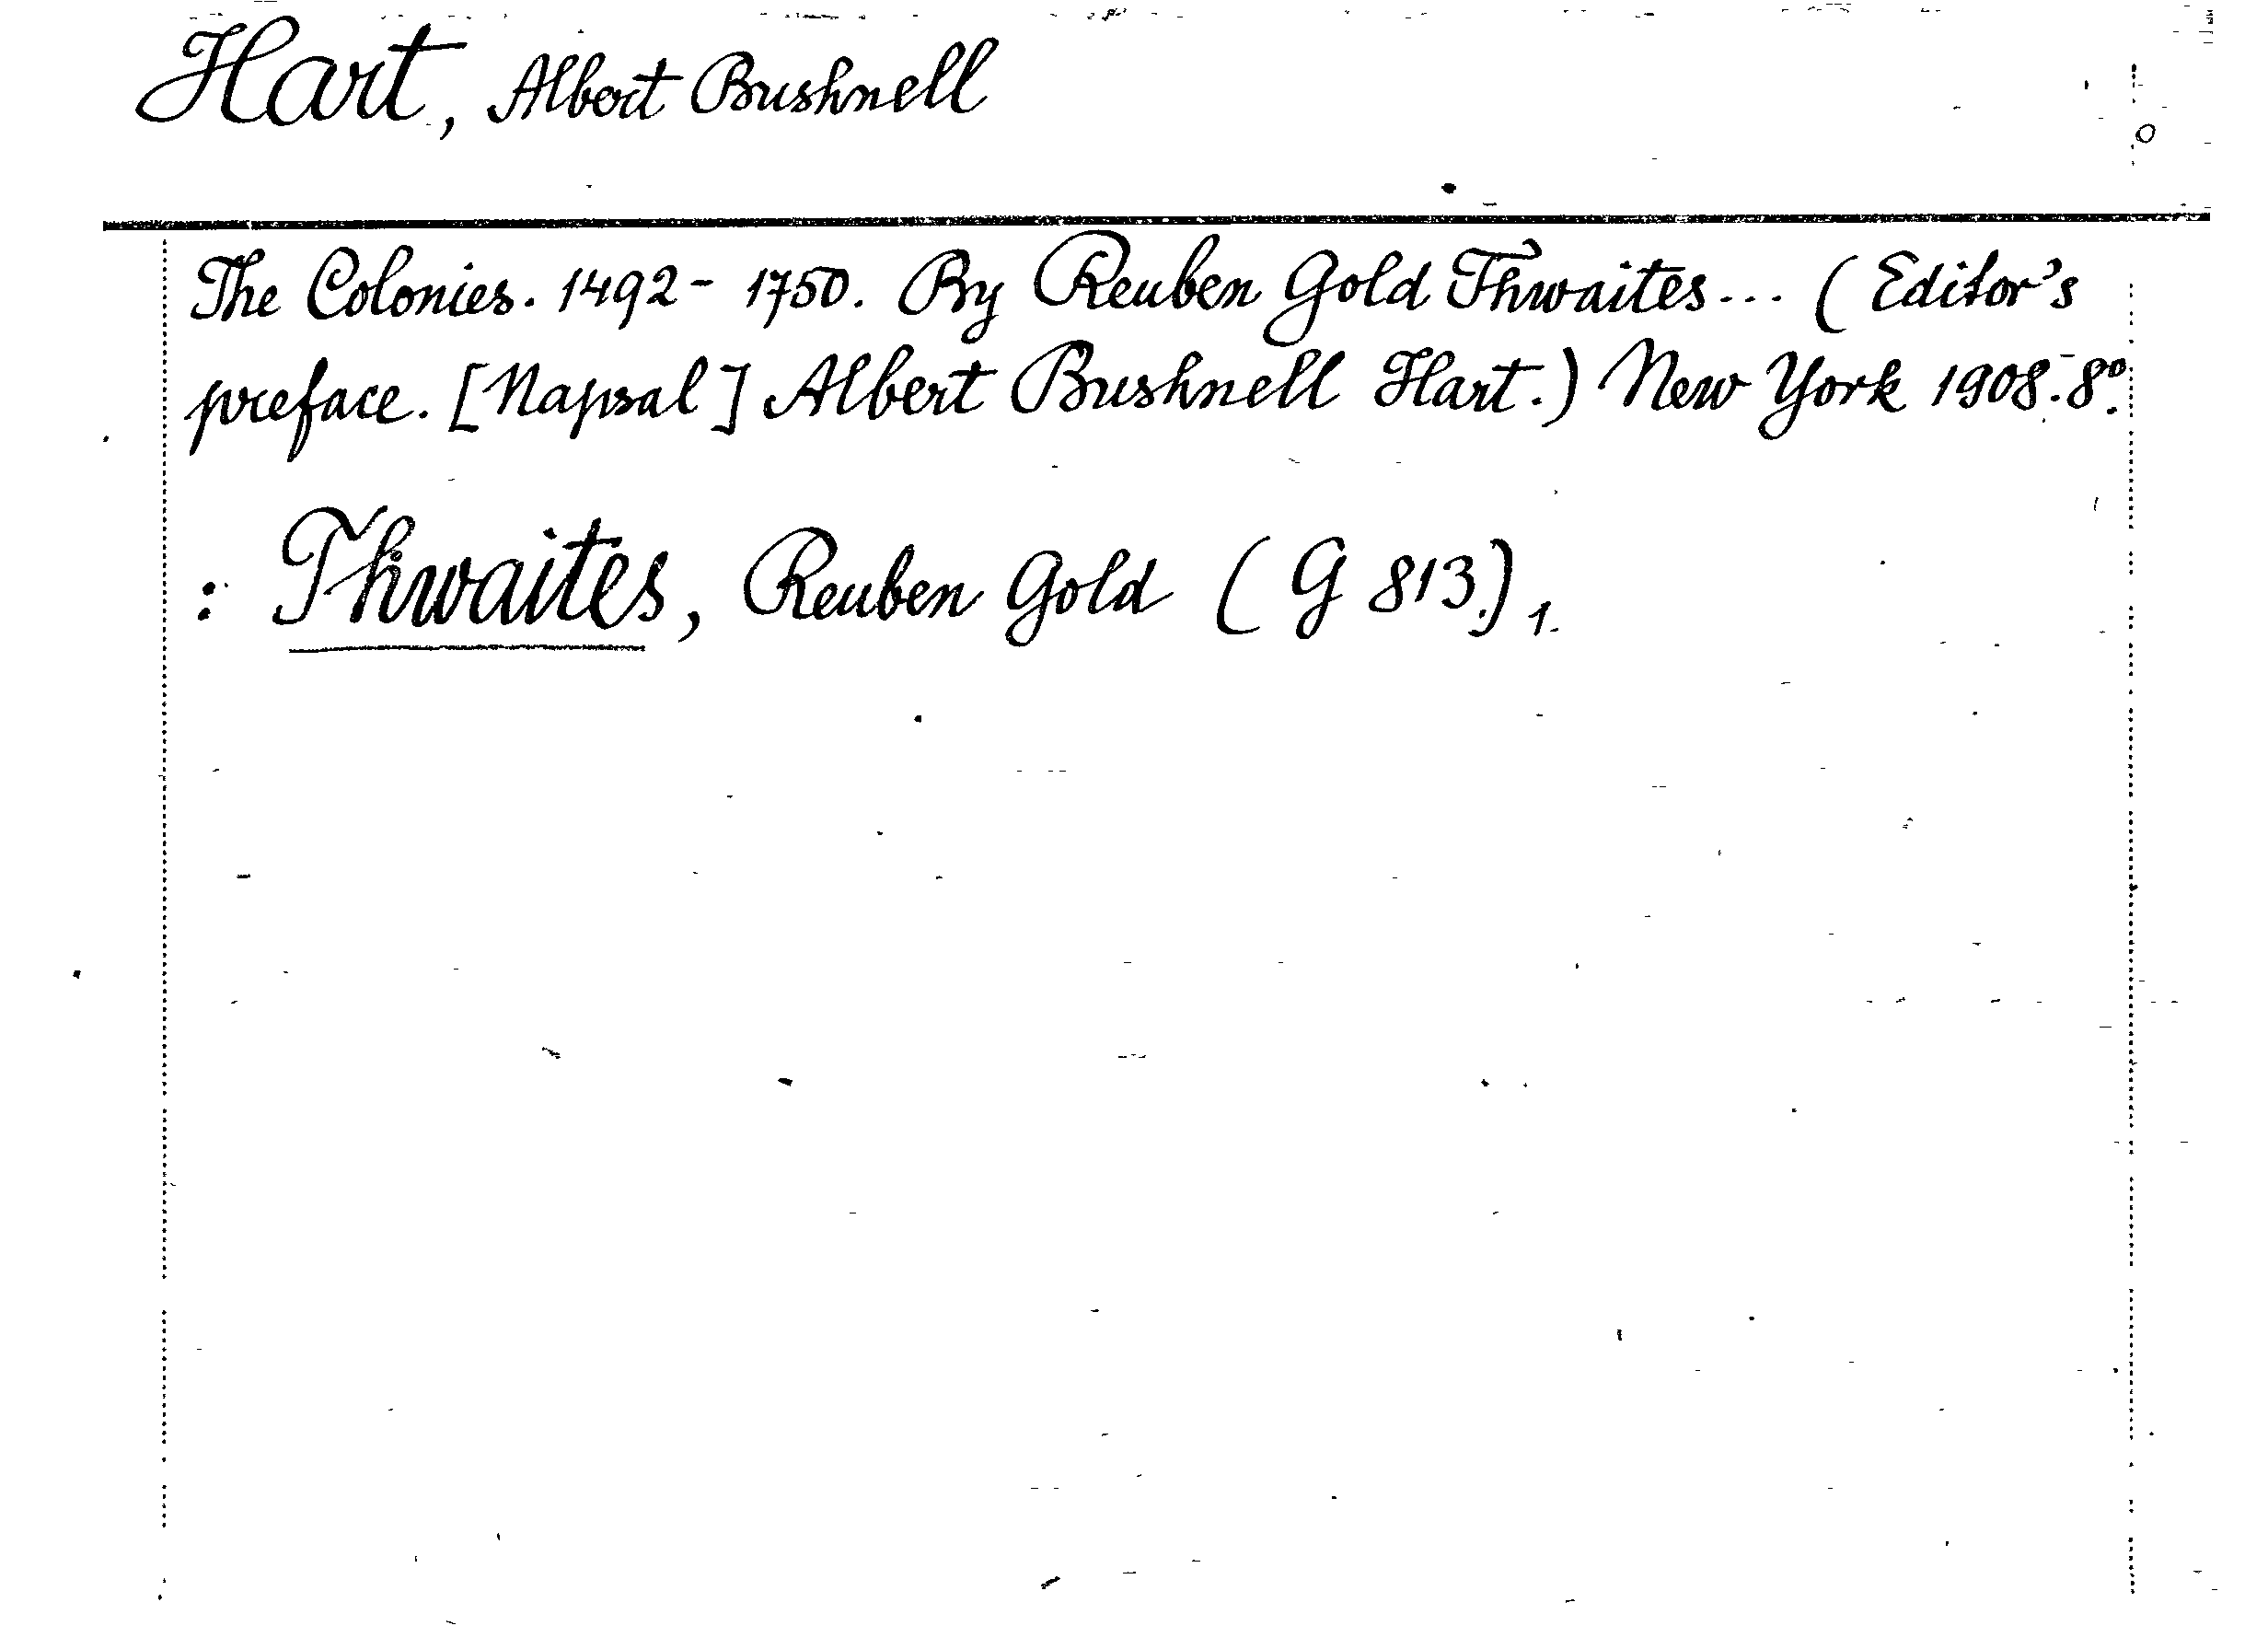 Hart, Albert Bushnell
The Colonies. 1492 - 1750. By Reuben Gold Thwaites... (Editor's
preface. [Napsal] Albert Bushnell Hart.) New York 1908. 8°.
: Thwaites, Reuben Gold (G 813.) 1.